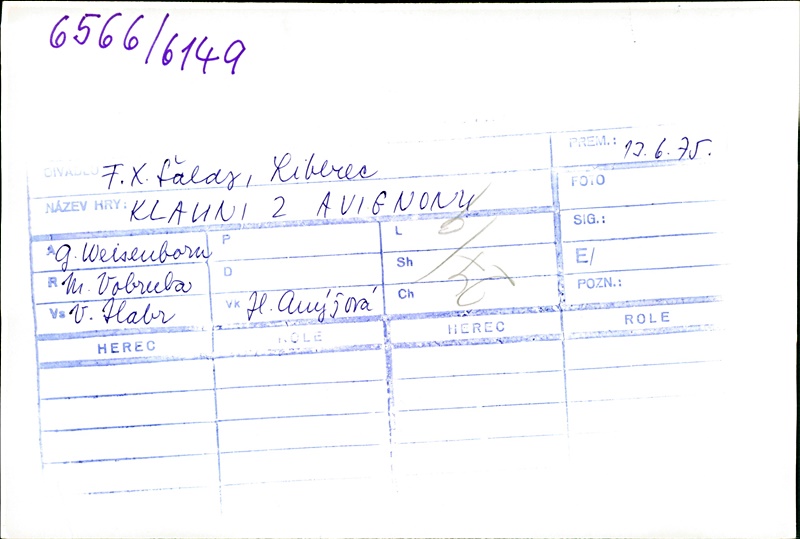 6566/6149
DIVADLO F. X. Šaldy, Liberec PREM.: 13.6.75.
NÁZEV HRY: KLAUNI Z AVIGNONU FOTO
A G. Weisenborn P L SIG.:
R M. Vobruba D Sh E/
Vs V. Habr Vk H. Anýžová Ch POZN.:
HEREC ROLE HEREC ROLE